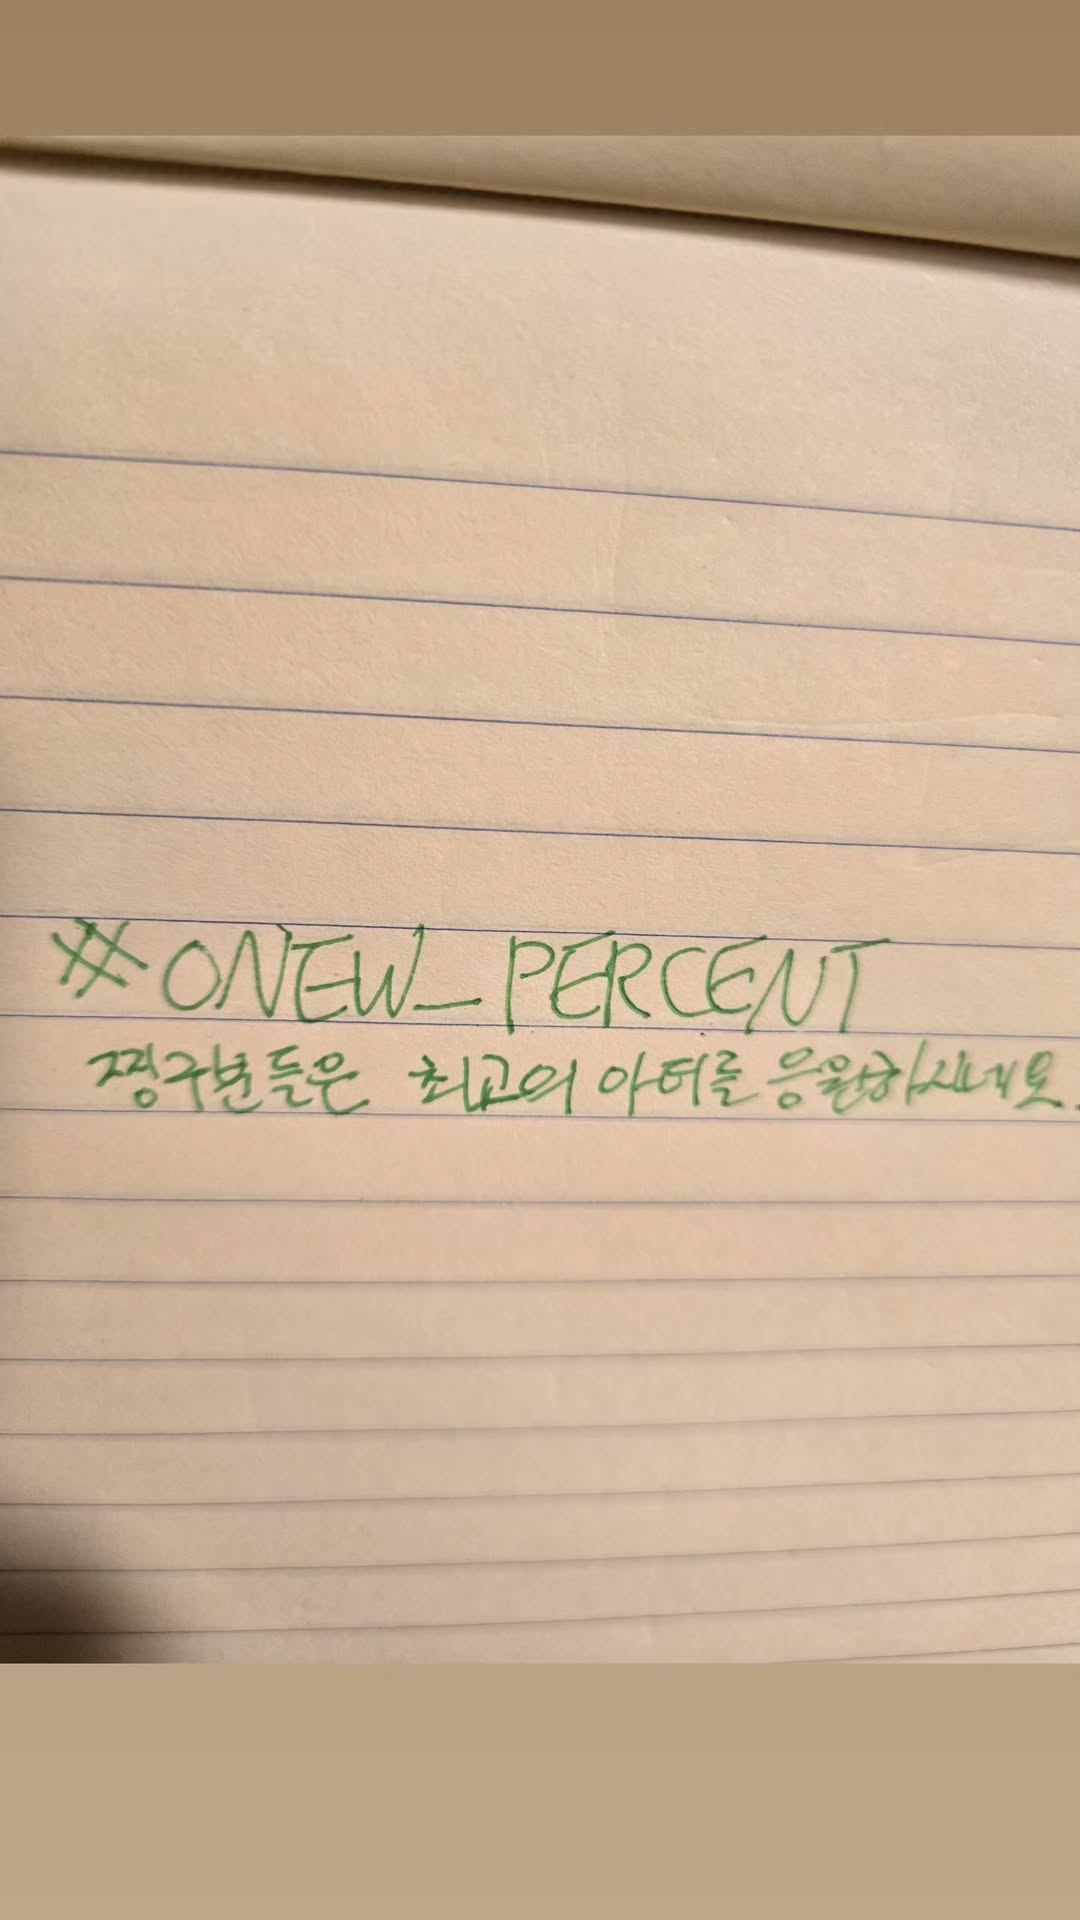 #ONEW_PERCENT
찡구분들은 최고의 아티를 응원하시네요.